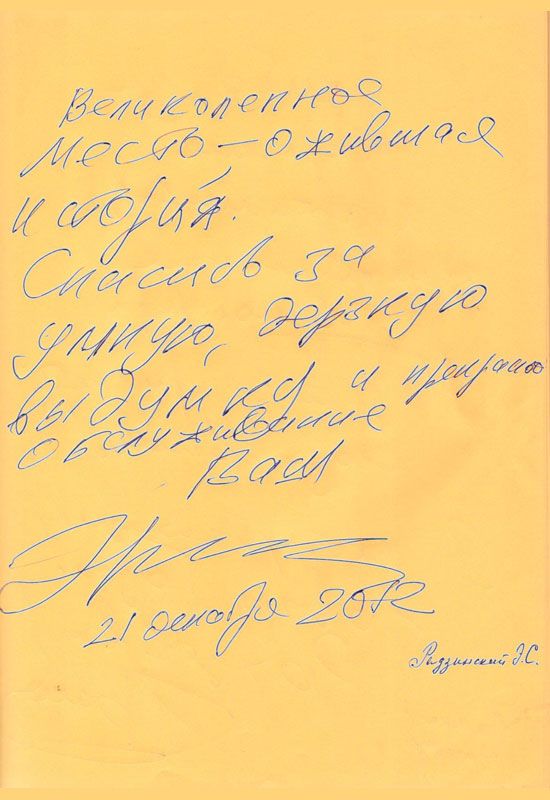 Великолепное
место – ожившая
история.
Спасибо за
умную, дерзкую
выдумку и прекрасное
обслуживание
Ваш
21 декабря 2012
Радзинский Э.С.